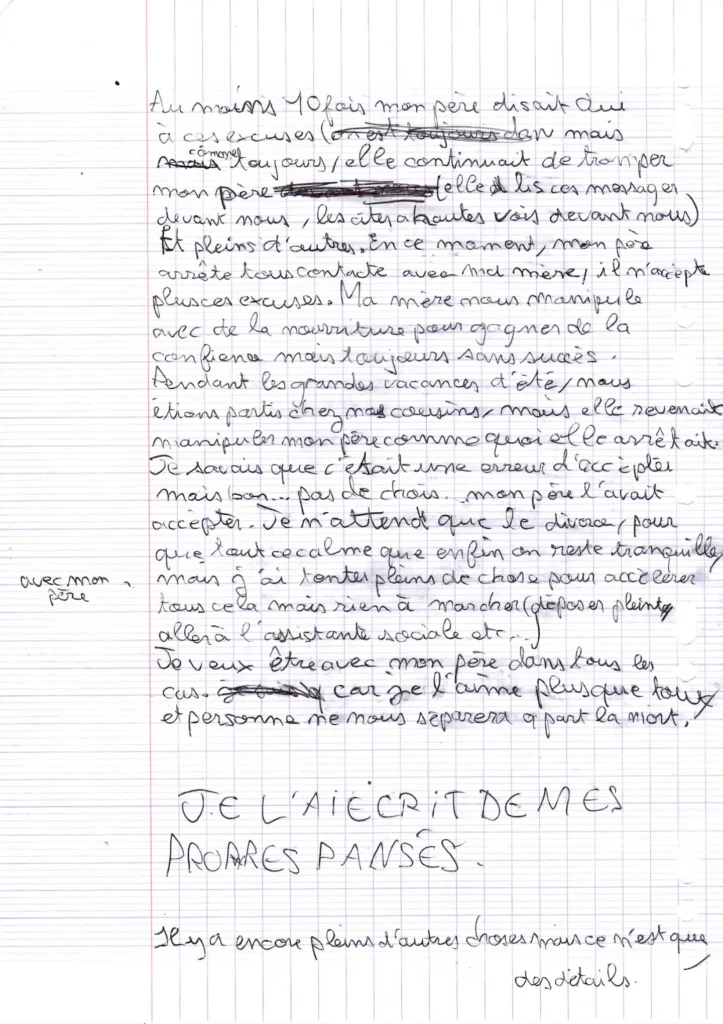 Au moins 10 fois mon père disait Oui
à ces excuses (on est toujours dan mais
comme toujours, elle continuait de tromper
mon père (elle lis ces messages
devant nous, les cites a hautes vois devant nous)
Et pleins d'autres. En ce moment, mon père
arrête tous contacte avec ma mère, il n'accepte
plus ces excuses. Ma mère nous manipule
avec de la nourriture pour gagner de la
confience mais toujours sans succès.
Pendant les grandes vacances d'été, nous
étions partis chez nos cousins, mais elle revenait
manipuler mon père comme quoi elle arrêtait.
Je savais que c'était une erreur d'accèpter
mais bon... pas de chois. mon père l'avait
accèpter. Je n'attend que le divorce, pour
que tout ce calme que enfin on reste tranquille,
avec mon père
mais j'ai tenter pleins de chose pour accèlèrer
tous cela mais rien à marcher (déposer plainte
aller à l'assistante sociale etc...)
Je veux être avec mon père dans tous les
cas. car je l'aime plus que toux
et personne ne nous séparera a part la mort.
JE L'AI ÉCRIT DE MES
PROPRES PANSÉS.
Il y a encore pleins d'autres choses mais ce n'est que
des détails.